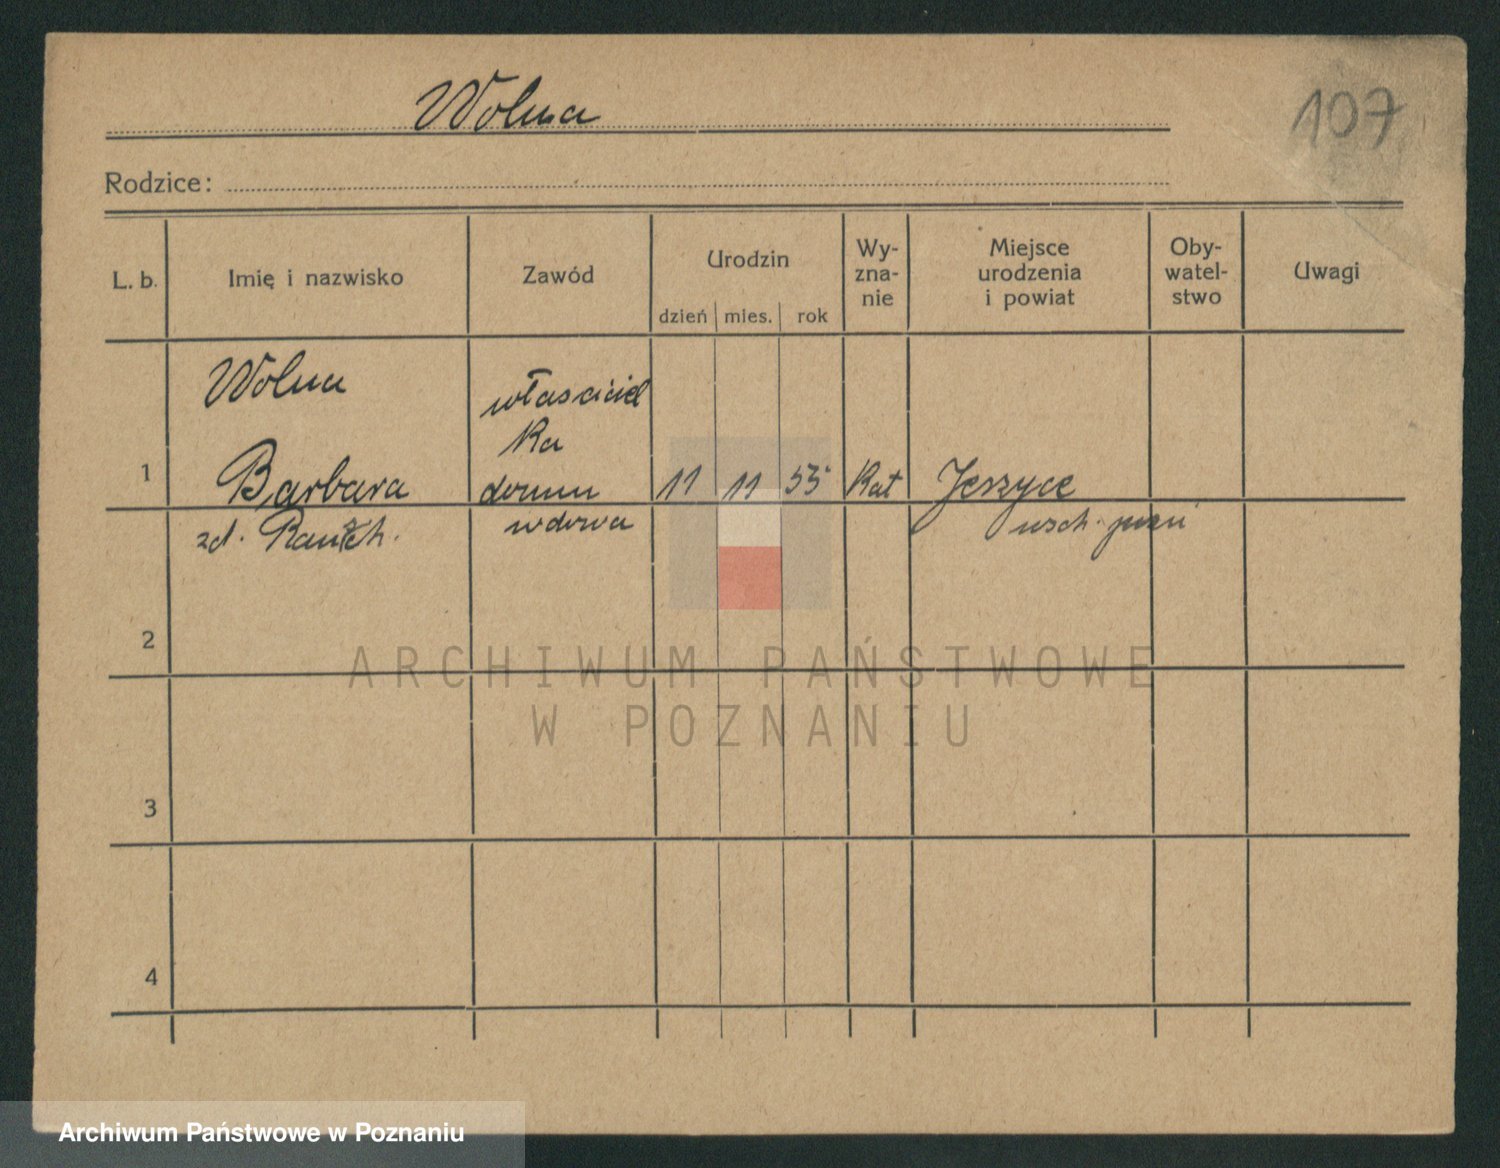 Wolna
107
Rodzice:
L. b.
Imię i nazwisko
Zawód
Urodzin
dzień
mies.
rok
Wy-
zna-
nie
Miejsce
urodzenia
i powiat
Oby-
watel-
stwo
Uwagi
1
Wolna
Barbara
zd.
właściciel
ka
domu
wdowa
11
11
53
Kat
Jerzyce
wsch.
2
3
4
ARCHIWUM PAŃSTWOWE
W POZNANIU
Archiwum Państwowe w Poznaniu